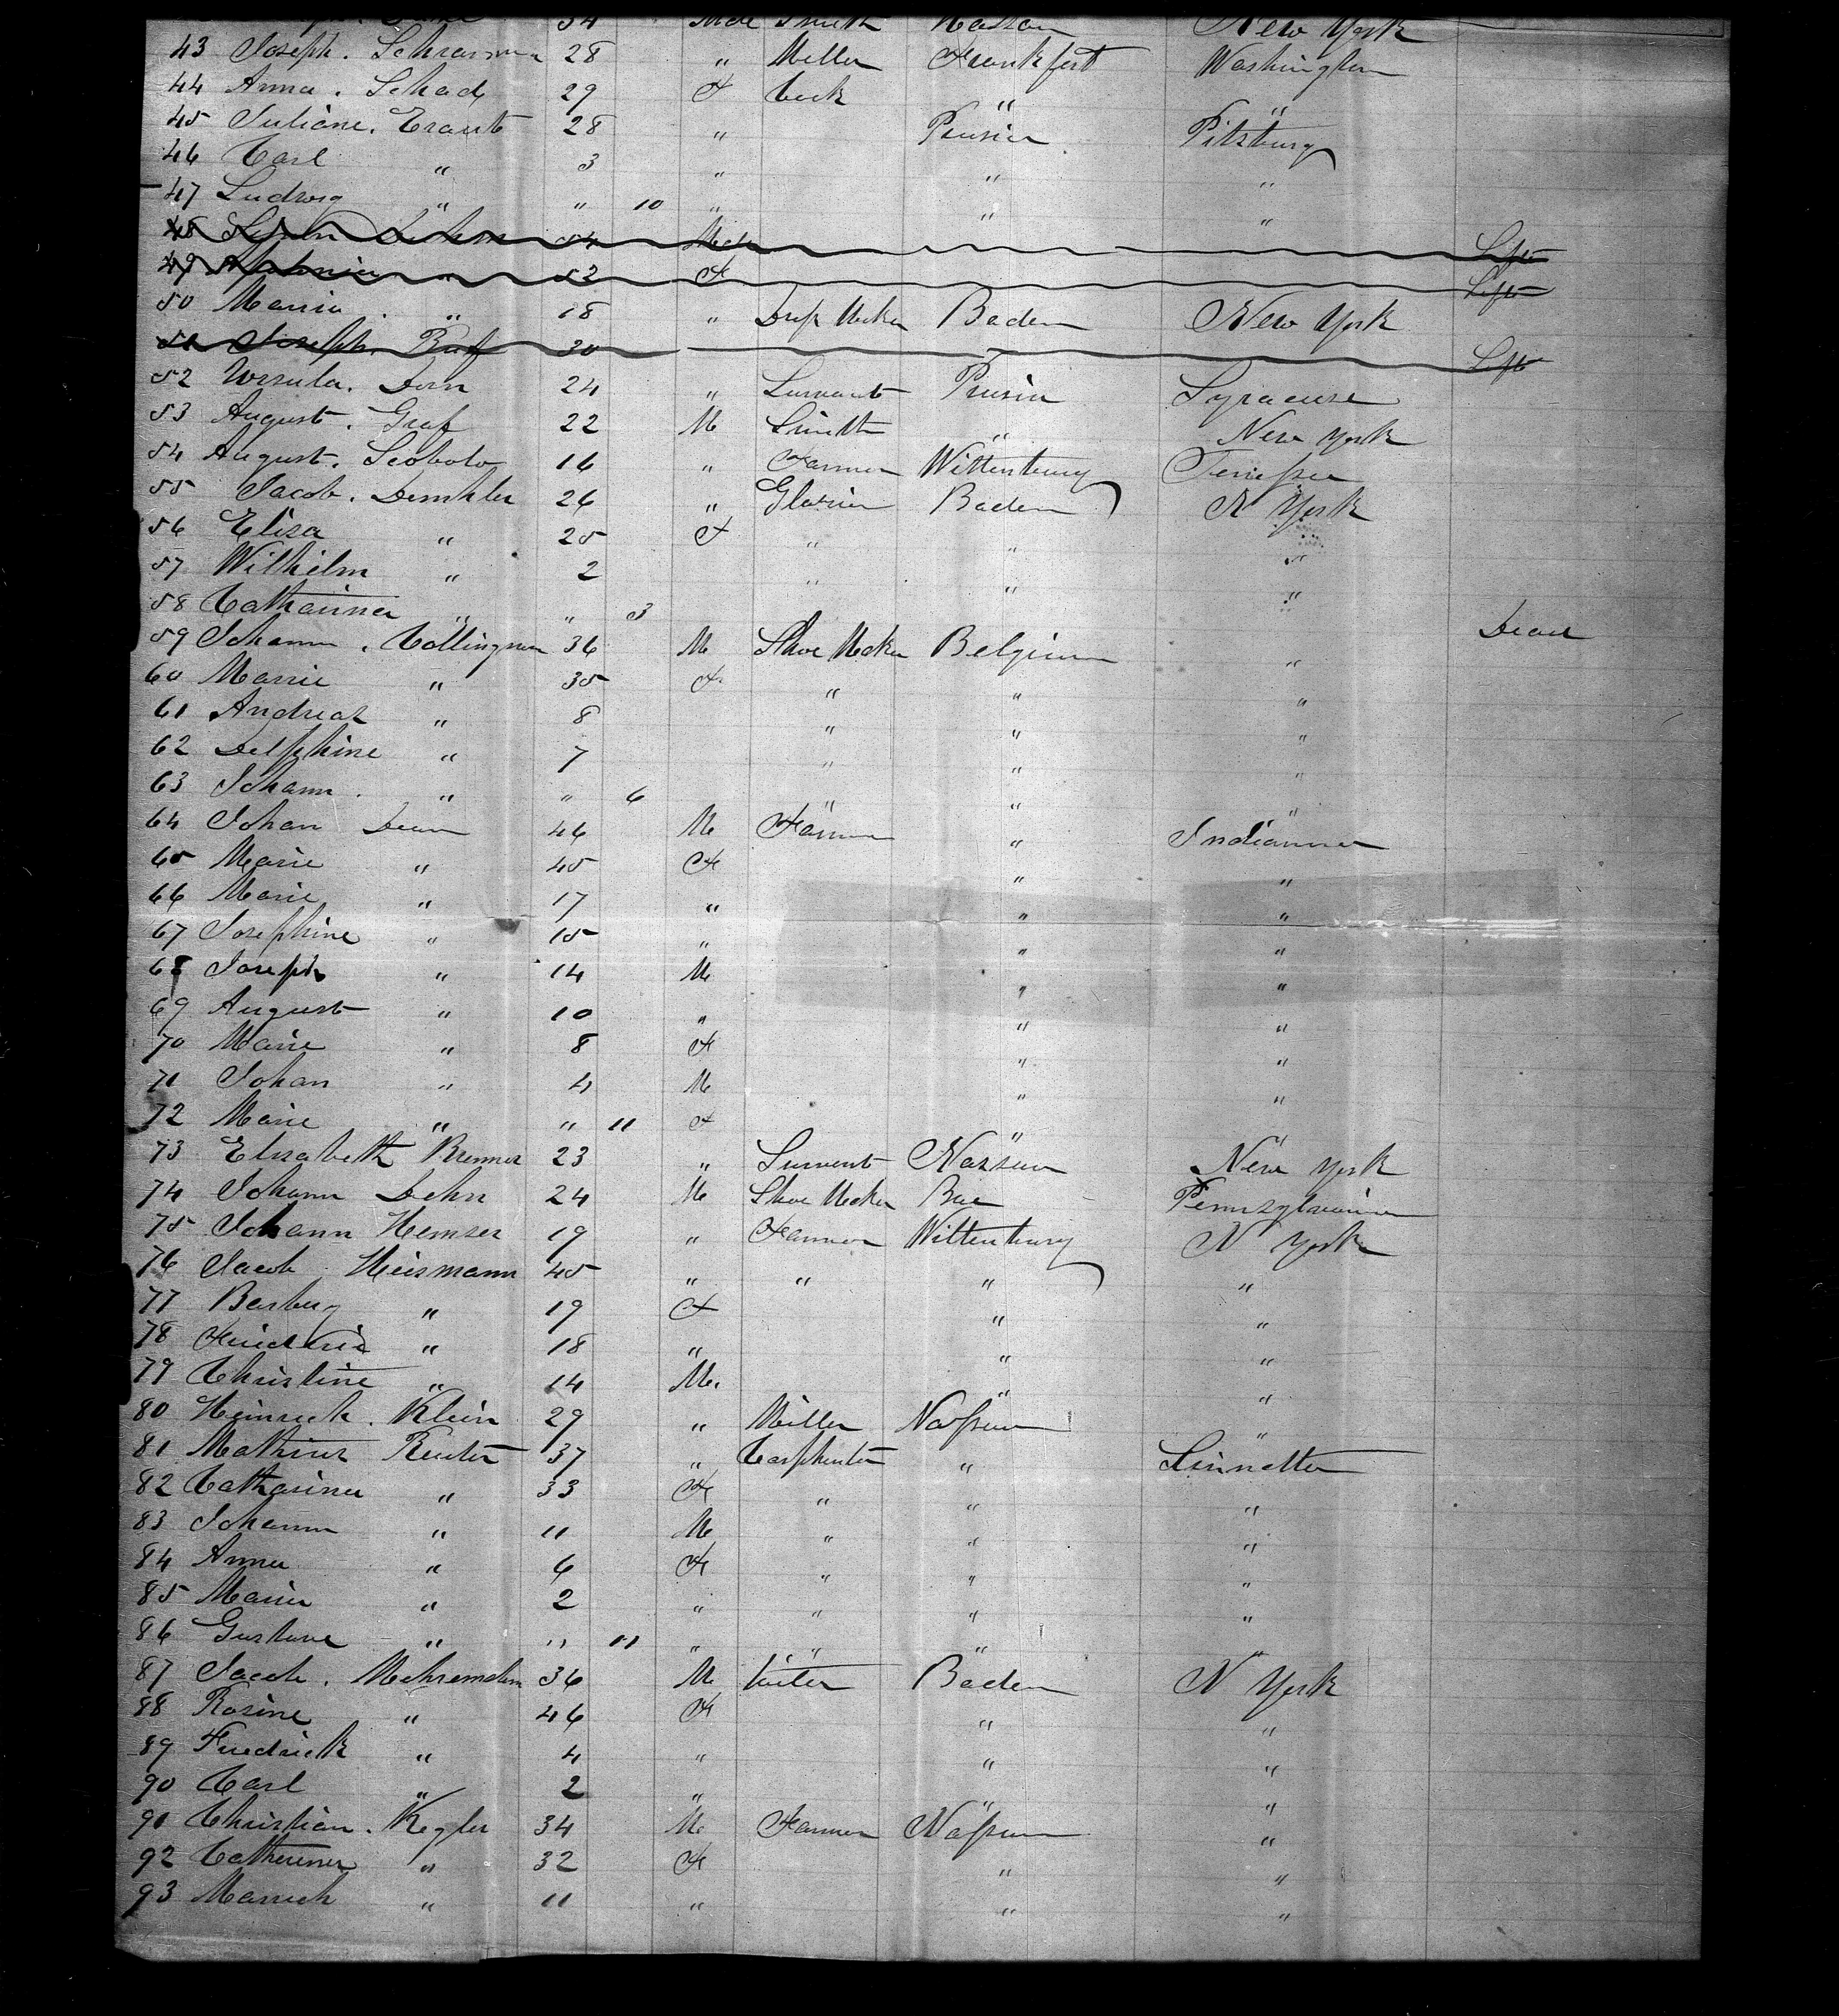 34 Smith Nassau New York
43 Joseph. Schramm 28 " Miller Frankfort Washington
44 Anna. Schad 29 F Cook " "
45 Juliane. Eraut 28 " Prusia Pitsburg
46 Carl " 3 " " "
47 Ludwig " " 10 " " "
48 54 Male Left
49 " 52 F Left
50 Maria. " 18 " Dress Maker Baden New York
51 Joseph. Ruf 30 Left
52 Ursula. Dorn 24 " Survant Prusia Syracuse
53 August. Graf 22 M Smith " New York
54 August. 16 " Farmer Wittenburg Tenessee
55 Jacob. Demhler 26 " Glasier Baden N York
56 Eliza " 25 F " " "
57 Wilhilm " 2 " " "
58 Catharina " " 3
59 Johann. Collingnon 36 M Shoe Maker Belgium " Dead
60 Marie " 35 F " " "
61 Andreas " 8 " " "
62 Delphine " 7 " " "
63 Johann. " " 6 " " "
64 Johan 46 M Farmer " Indianna
65 Marie " 45 F " "
66 Marie " 17 " " "
67 Josephine " 15 " " "
68 Joseph " 14 M " "
69 August " 10 " " "
70 Marie " 8 F " "
71 Johan " 4 M " "
72 Marie " " 11 F " "
73 Elisabeth Bremer 23 " Survent Nassau New York
74 Johann Dehn 24 M Shoe Maker Pennsylvania
75 Johann Hemser 19 " Farmer Wittenburg N York
76 Jacob Heismann 45 " " " "
77 Barburg " 19 F " "
78 " 18 " " "
79 Christine " 14 M. " "
80 Heinrich. Klein 29 " Miller Nassau "
81 Mathius Reuter 37 " Carphenter " Sinnetta
82 Catharina " 33 F " " "
83 Johann " 11 M " " "
84 Anna " 6 F " " "
85 Maria " 2 " " " "
86 Gustave " " 11 " " " "
87 Jacob. 36 M Baden N York
88 Rosine " 46 F " "
89 Fredrick " 4 " " "
90 Carl " 2 " " "
91 Christian. Kegler 34 M Farmer Nassau "
92 Catherina " 32 F " "
93 " 11 " " "